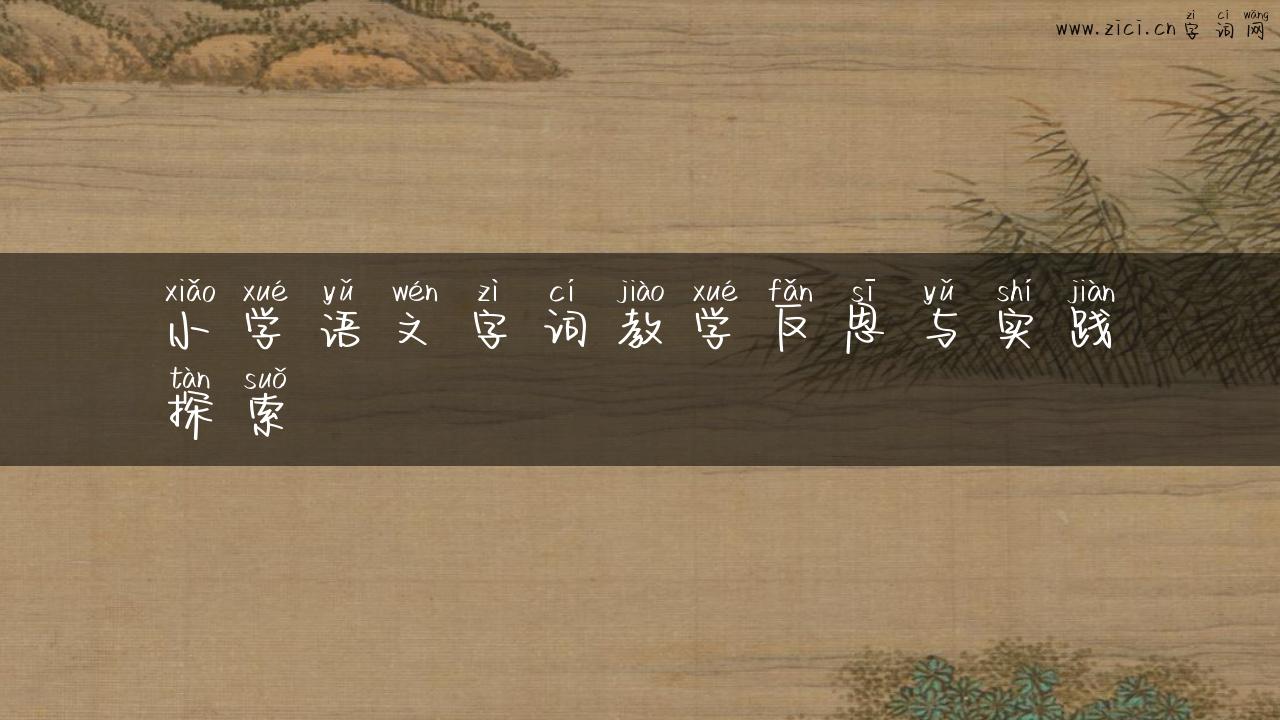 zì cí wǎng
www.zici.cn 字 词 网
xiǎo xué yǔ wén zì cí jiào xué fǎn sī yǔ shí jiàn
小 学 语 文 字 词 教 学 反 思 与 实 践
tàn suǒ
探 索